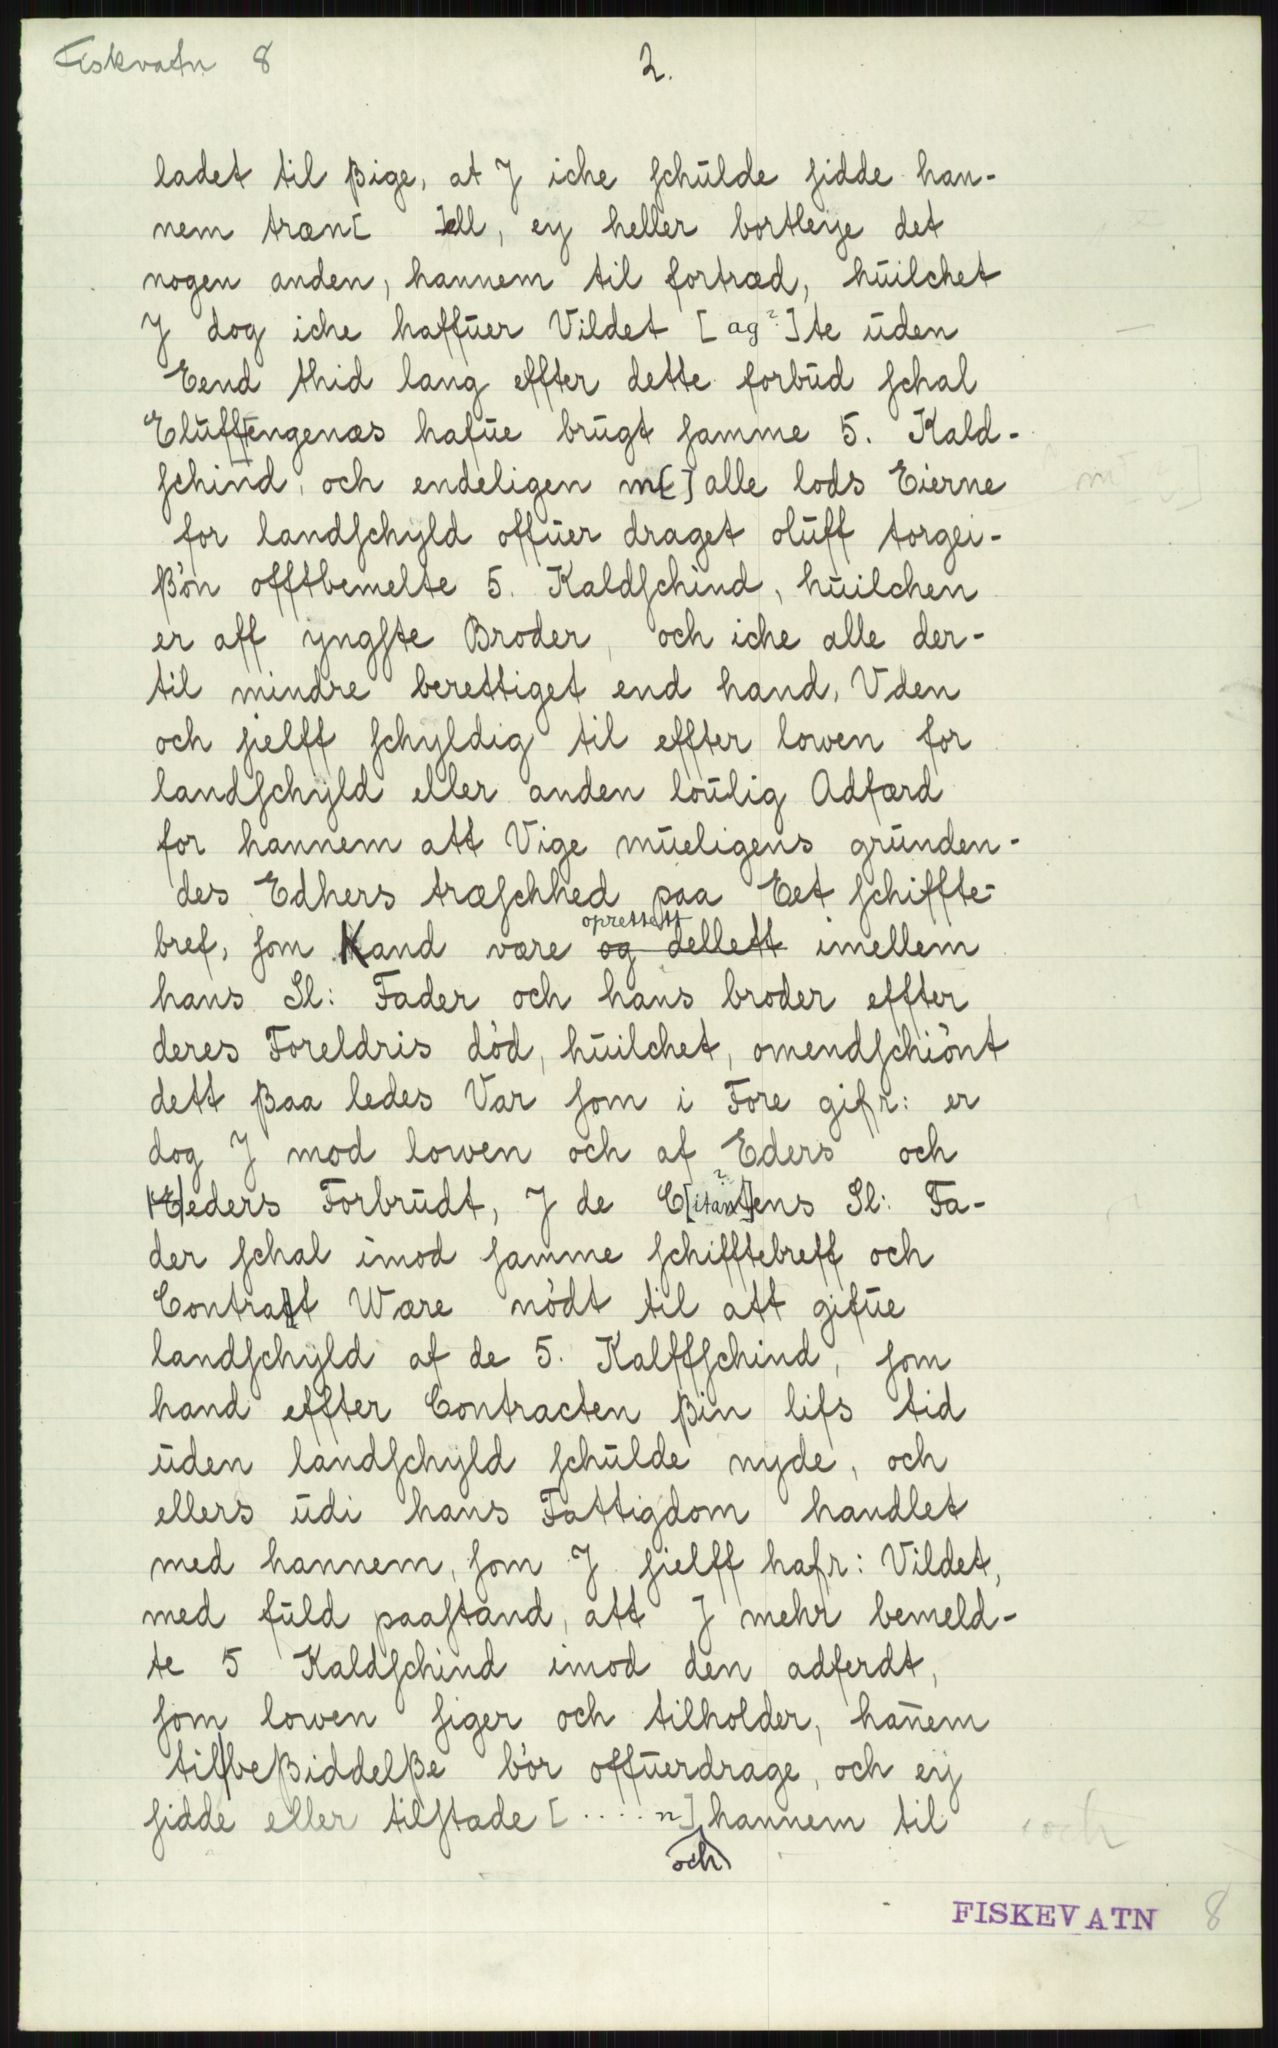 Fiskvatn 8
2.
ladet til ßige, at J iche schulde sidde han-
nem træn[ ]ell, ey heller bortleye det
nogen anden, hannem til fortræd, huilchet
J dog iche haffuer Vildet [ag?]te uden
Eend thid lang effter dette forbud schal
Eluffengenæs hafue brugt samme 5. Kald-
schind, och endeligen m[ ] alle lods Eierne
for landschyld offuer draget oluff torgei-
ßøn offtbemelte 5. Kaldschind, huilchen
er aff yngste Broder, och iche alle der-
til mindre berettiget end hand, Vden
och sielff schyldig til effter lowen for
landschyld eller anden loulig Adfærd
for hannem att Vige mueligens grunden-
des Edhers træschhed paa Eet schiffte-
bref, som Kand være og dellett imellem
oprettett
hans Sl: Fader och hans broder effter
deres Foreldris død, huilchet, omendschiønt
dett ßaa ledes Var som i Fore gifr: er
dog J mod lowen och af Eders och
eders Forbrudt, J de C[itan?]tens Sl: Fa-
der schal imod samme schifftebreff och
Contract Wære nødt til att gifue
landschyld af de 5. Kalffschind, som
hand effter Contracten ßin lifs tid
uden landschyld schulde nyde, och
ellers udi hans Fattigdom handlet
med hannem, som J sielff hafr: Vildet,
med fuld paastand, att J mehr bemeld-
te 5 Kaldschind imod den adferdt,
som lowen siger och tilholder, hañem
til beßiddelße bør offuerdrage, och eij
sidde eller tilstade [.....n] hannem til
och
och
FISKEVATN 8